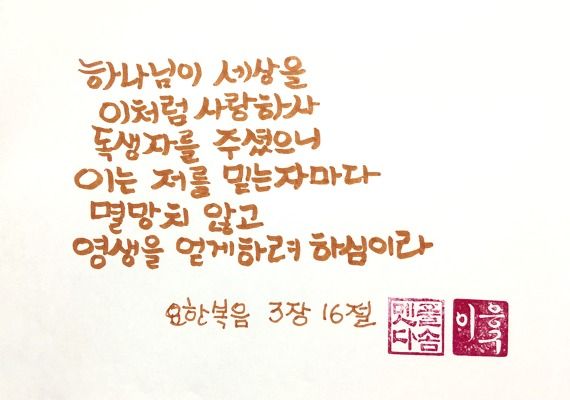 하나님이 세상을
이처럼 사랑하사
독생자를 주셨으니
이는 저를 믿는자마다
멸망치 않고
영생을 얻게하려 하심이라
요한복음 3장 16절